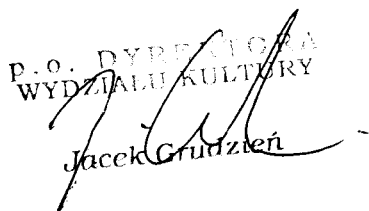 p.o. DYREKTORA
WYDZIAŁU KULTURY
Jacek Grudzień